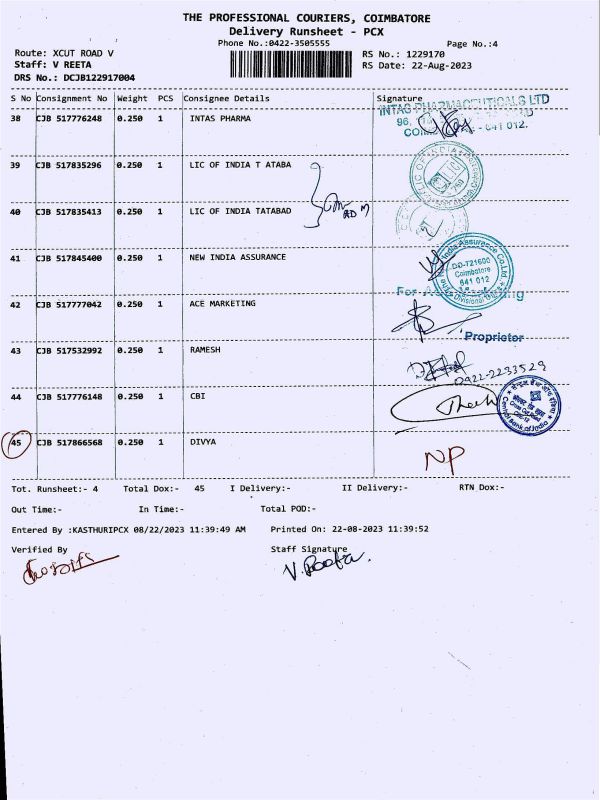 THE PROFESSIONAL COURIERS, COIMBATORE
Delivery Runsheet - PCX
Phone No.:0422-3505555
Page No.:4
Route: XCUT ROAD V
RS No.: 1229170
Staff: V REETA
RS Date: 22-Aug-2023
DRS No.: DCJB122917004
S No Consignment No Weight PCS Consignee Details Signature
INTAS PHARMACEUTICALS LTD
38 CJB 517776248 0.250 1 INTAS PHARMA
96,
641 012.
39 CJB 517835296 0.250 1 LIC OF INDIA T ATABA
LIC OF INDIA
40 CJB 517835413 0.250 1 LIC OF INDIA TATABAD
41 CJB 517845400 0.250 1 NEW INDIA ASSURANCE
India Assurance Co. Ltd.
DO-721600
Coimbatore
641 012
Divisional
42 CJB 517777042 0.250 1 ACE MARKETING
For
Proprietor
43 CJB 517532992 0.250 1 RAMESH
0422-2233529
44 CJB 517776148 0.250 1 CBI
Central Bank of India
45 CJB 517866568 0.250 1 DIVYA
NP
Tot. Runsheet:- 4 Total Dox:- 45 I Delivery:- II Delivery:- RTN Dox:-
Out Time:- In Time:- Total POD:-
Entered By :KASTHURIPCX 08/22/2023 11:39:49 AM Printed On: 22-08-2023 11:39:52
Verified By Staff Signature
V. Reeta